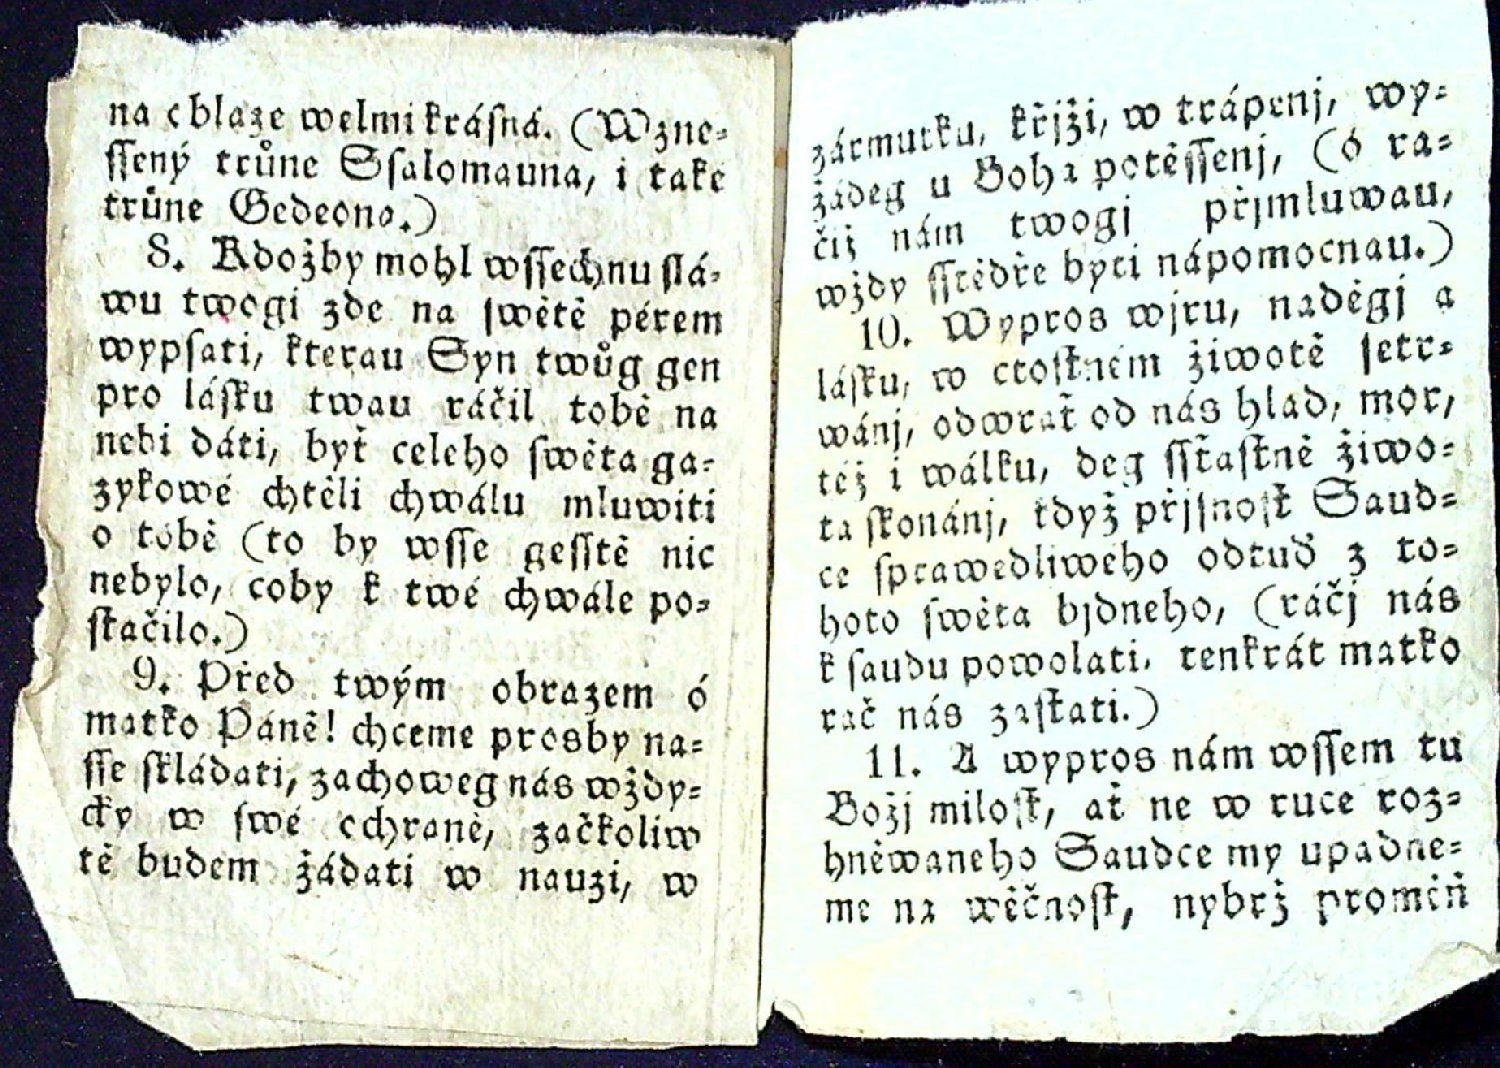 na obloze welmi krásná. (Wzne⸗
ſſený trůne Sſalomauna, i také
trůne Gedeona.)
8. Kdožby mohl wſſechnu ſlá⸗
wu twogi zde na ſwětě pérem
wypſati, kterau Syn twůg gen
pro láſku twau ráčil tobě na
nebi dáti, byť celeho ſwěta ga⸗
zykowé chtěli chwálu mluwiti
o tobě (to by wſſe geſſtě nic
nebylo, coby k twé chwále po⸗
ſtačilo.)
9. Před twým obrazem ó
matko Páně! chceme prosby na⸗
ſſe ſkládati, zachoweg nás wždy⸗
cky w ſwé ochraně, začkoliw
tě budem žádati w nauzi, w
zármutku, křjži, w trápenj, wy⸗
žádeg u Boha potěſſenj, (ó ra⸗
čiž nám twogj přjmluwau,
wždy ſſtědře byti nápomocnau.)
10. Wypros wjru, naděgj a
láſku, w ctoſtném žiwotě ſetr⸗
wánj, odwrať od nás hlad, mor,
též i wálku, deg ſſťaſtné žiwo⸗
ta ſkonánj, když přjſnoſt Saud⸗
ce ſprawedliweho odtuď z to⸗
hoto ſwěta bjdneho, (ráčj nás
k ſaudu powolati, tenkrát matko
rač nás zaſtati.)
11. A wypros nám wſſem tu
Božj miloſt, ať ne w ruce roz⸗
hněwaneho Saudce my upadne⸗
me na wěčnoſt, nybrž proměň